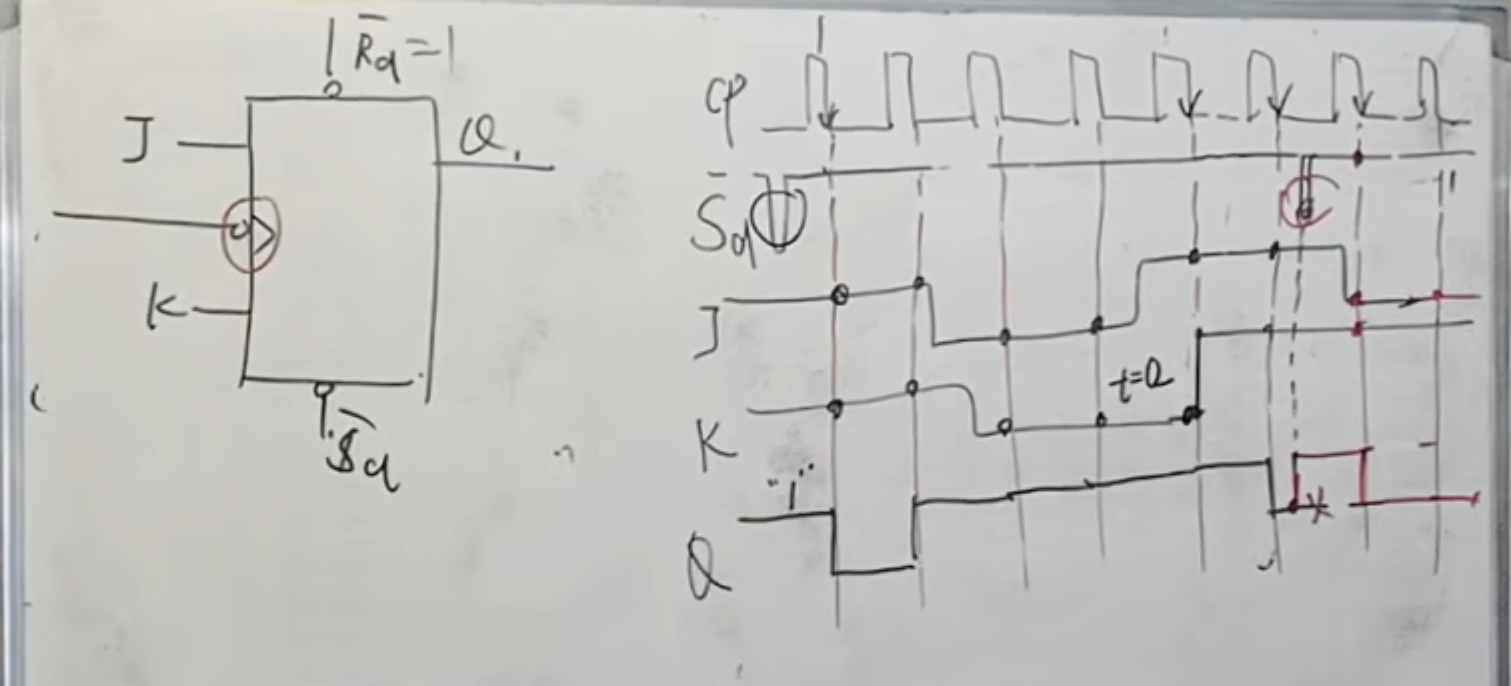 R̅d=1
J
Q
K
S̅d
CP
S̅d
J
K
t=Q
"1"
Q